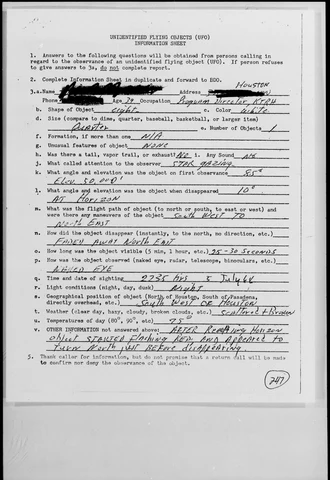 UNIDENTIFIED FLYING OBJECTS (UFO)
INFORMATION SHEET
1. Answers to the following questions will be obtained from persons calling in
regard to the observation of an unidentified flying object (UFO). If person refuses
to give answers to 3a, do not complete report.
2. Complete Information Sheet in duplicate and forward to EDO.
3.a. Name Address Houston
Phone Age 29 Occupation Program Director, KTRH
b. Shape of Object c. Color White
d. Size (compare to dime, quarter, baseball, basketball, or larger item)
Quarter e. Number of Objects 1
f. Formation, if more than one N/A
g. Unusual features of object NONE
h. Was there a tail, vapor trail, or exhaust No i. Any Sound No
j. What called attention to the observer Star gazing
k. What angle and elevation was the object on first observance 85°
Elev 50,000'
l. What angle and elevation was the object when disappeared 10°
AT Horizon
m. What was the flight path of object (to north or south, to east or west) and
were there any maneuvers of the object South West TO
North East
n. How did the object disappear (instantly, to the north, no direction, etc.)
Faded away North East
o. How long was the object visible (5 min, 1 hour, etc.) 25-30 Seconds
p. How was the object observed (naked eye, radar, telescope, binoculars, etc.)
Naked EYE
q. Time and date of sighting 2235 hrs 5 July 66
r. Light conditions (night, day, dusk) Night
s. Geographical position of object (North of Houston, South of Pasadena,
directly overhead, etc.) South West OF Houston
t. Weather (clear day, hazy, cloudy, broken clouds, etc.) Scattered & Broken
u. Temperatures of day (80°, 90°, etc) 75°
v. OTHER INFORMATION not answered above: AFTER Reaching Horizon
object started Flashing RED and appeared to
turn North just BEFORE disappearing.
5. Thank caller for information, but do not promise that a return call will be made
to confirm nor deny the observance of the object.
247